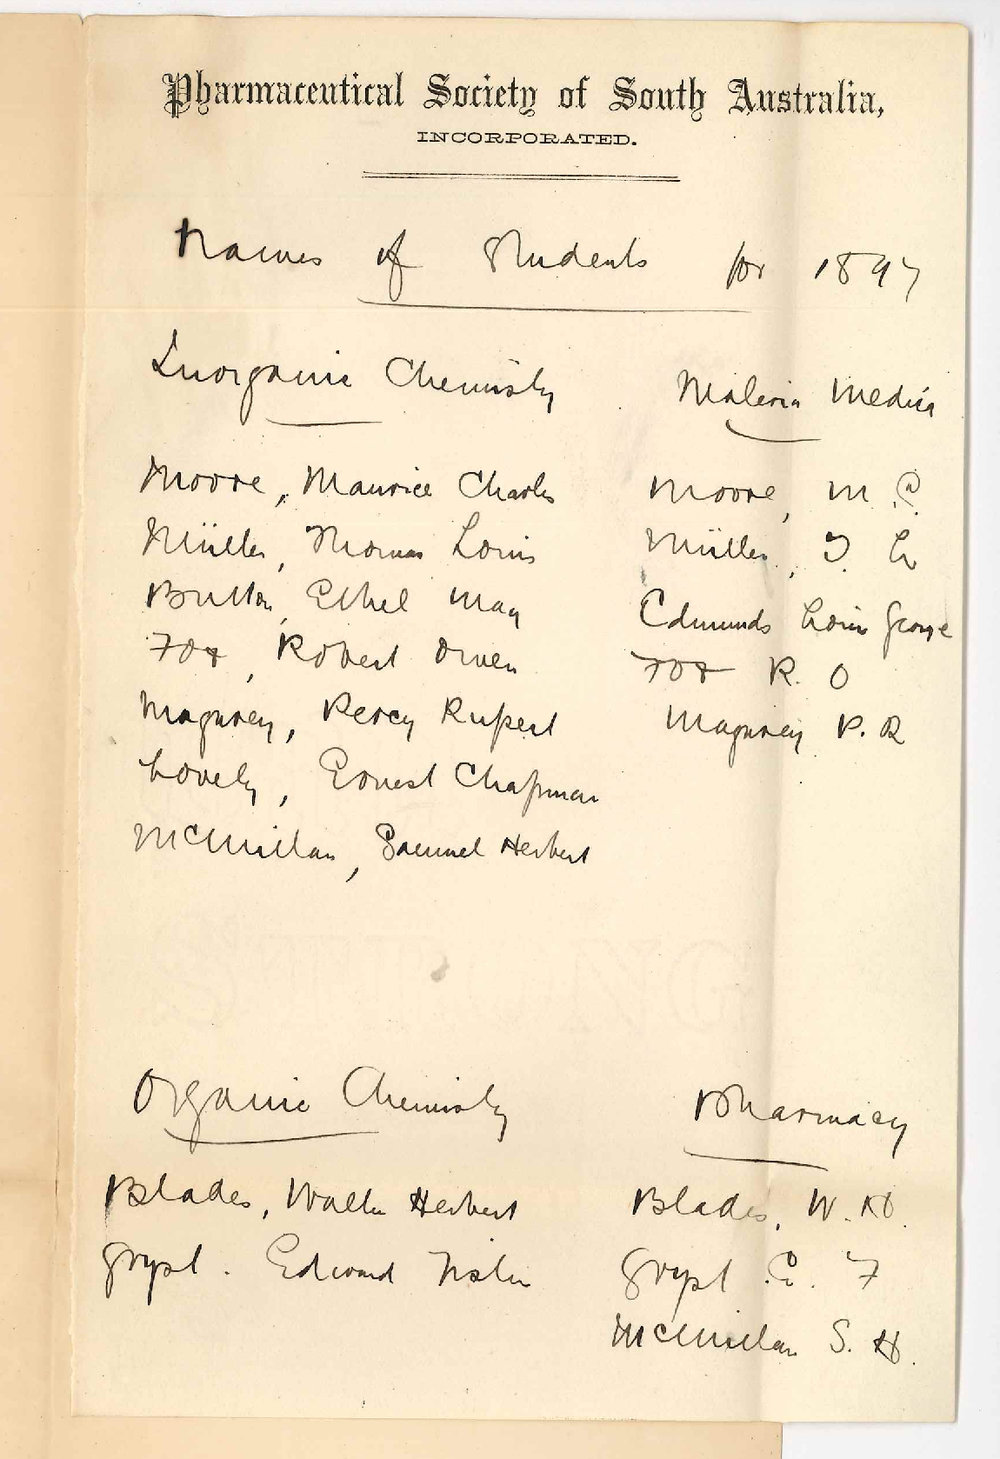 Pharmaceutical Society of South Australia,
INCORPORATED.
Names of Students for 1897
Inorganic Chemistry
Moore, Maurice Charles
Müller, Thomas Louis
Button, Ethel May
Fox, Robert Owen
Magarey, Percy Rupert
Lovely, Ernest Chapman
McMillan, Samuel Herbert
Materia Medica
Moore, M. C.
Müller, T. L
Edmunds Louis George
Fox R. O
Magarey P. R
Organic Chemistry
Blades, Walter Herbert
Grypt. Edward
Pharmacy
Blades, W. H.
Grypt E. F
McMillan S. H.